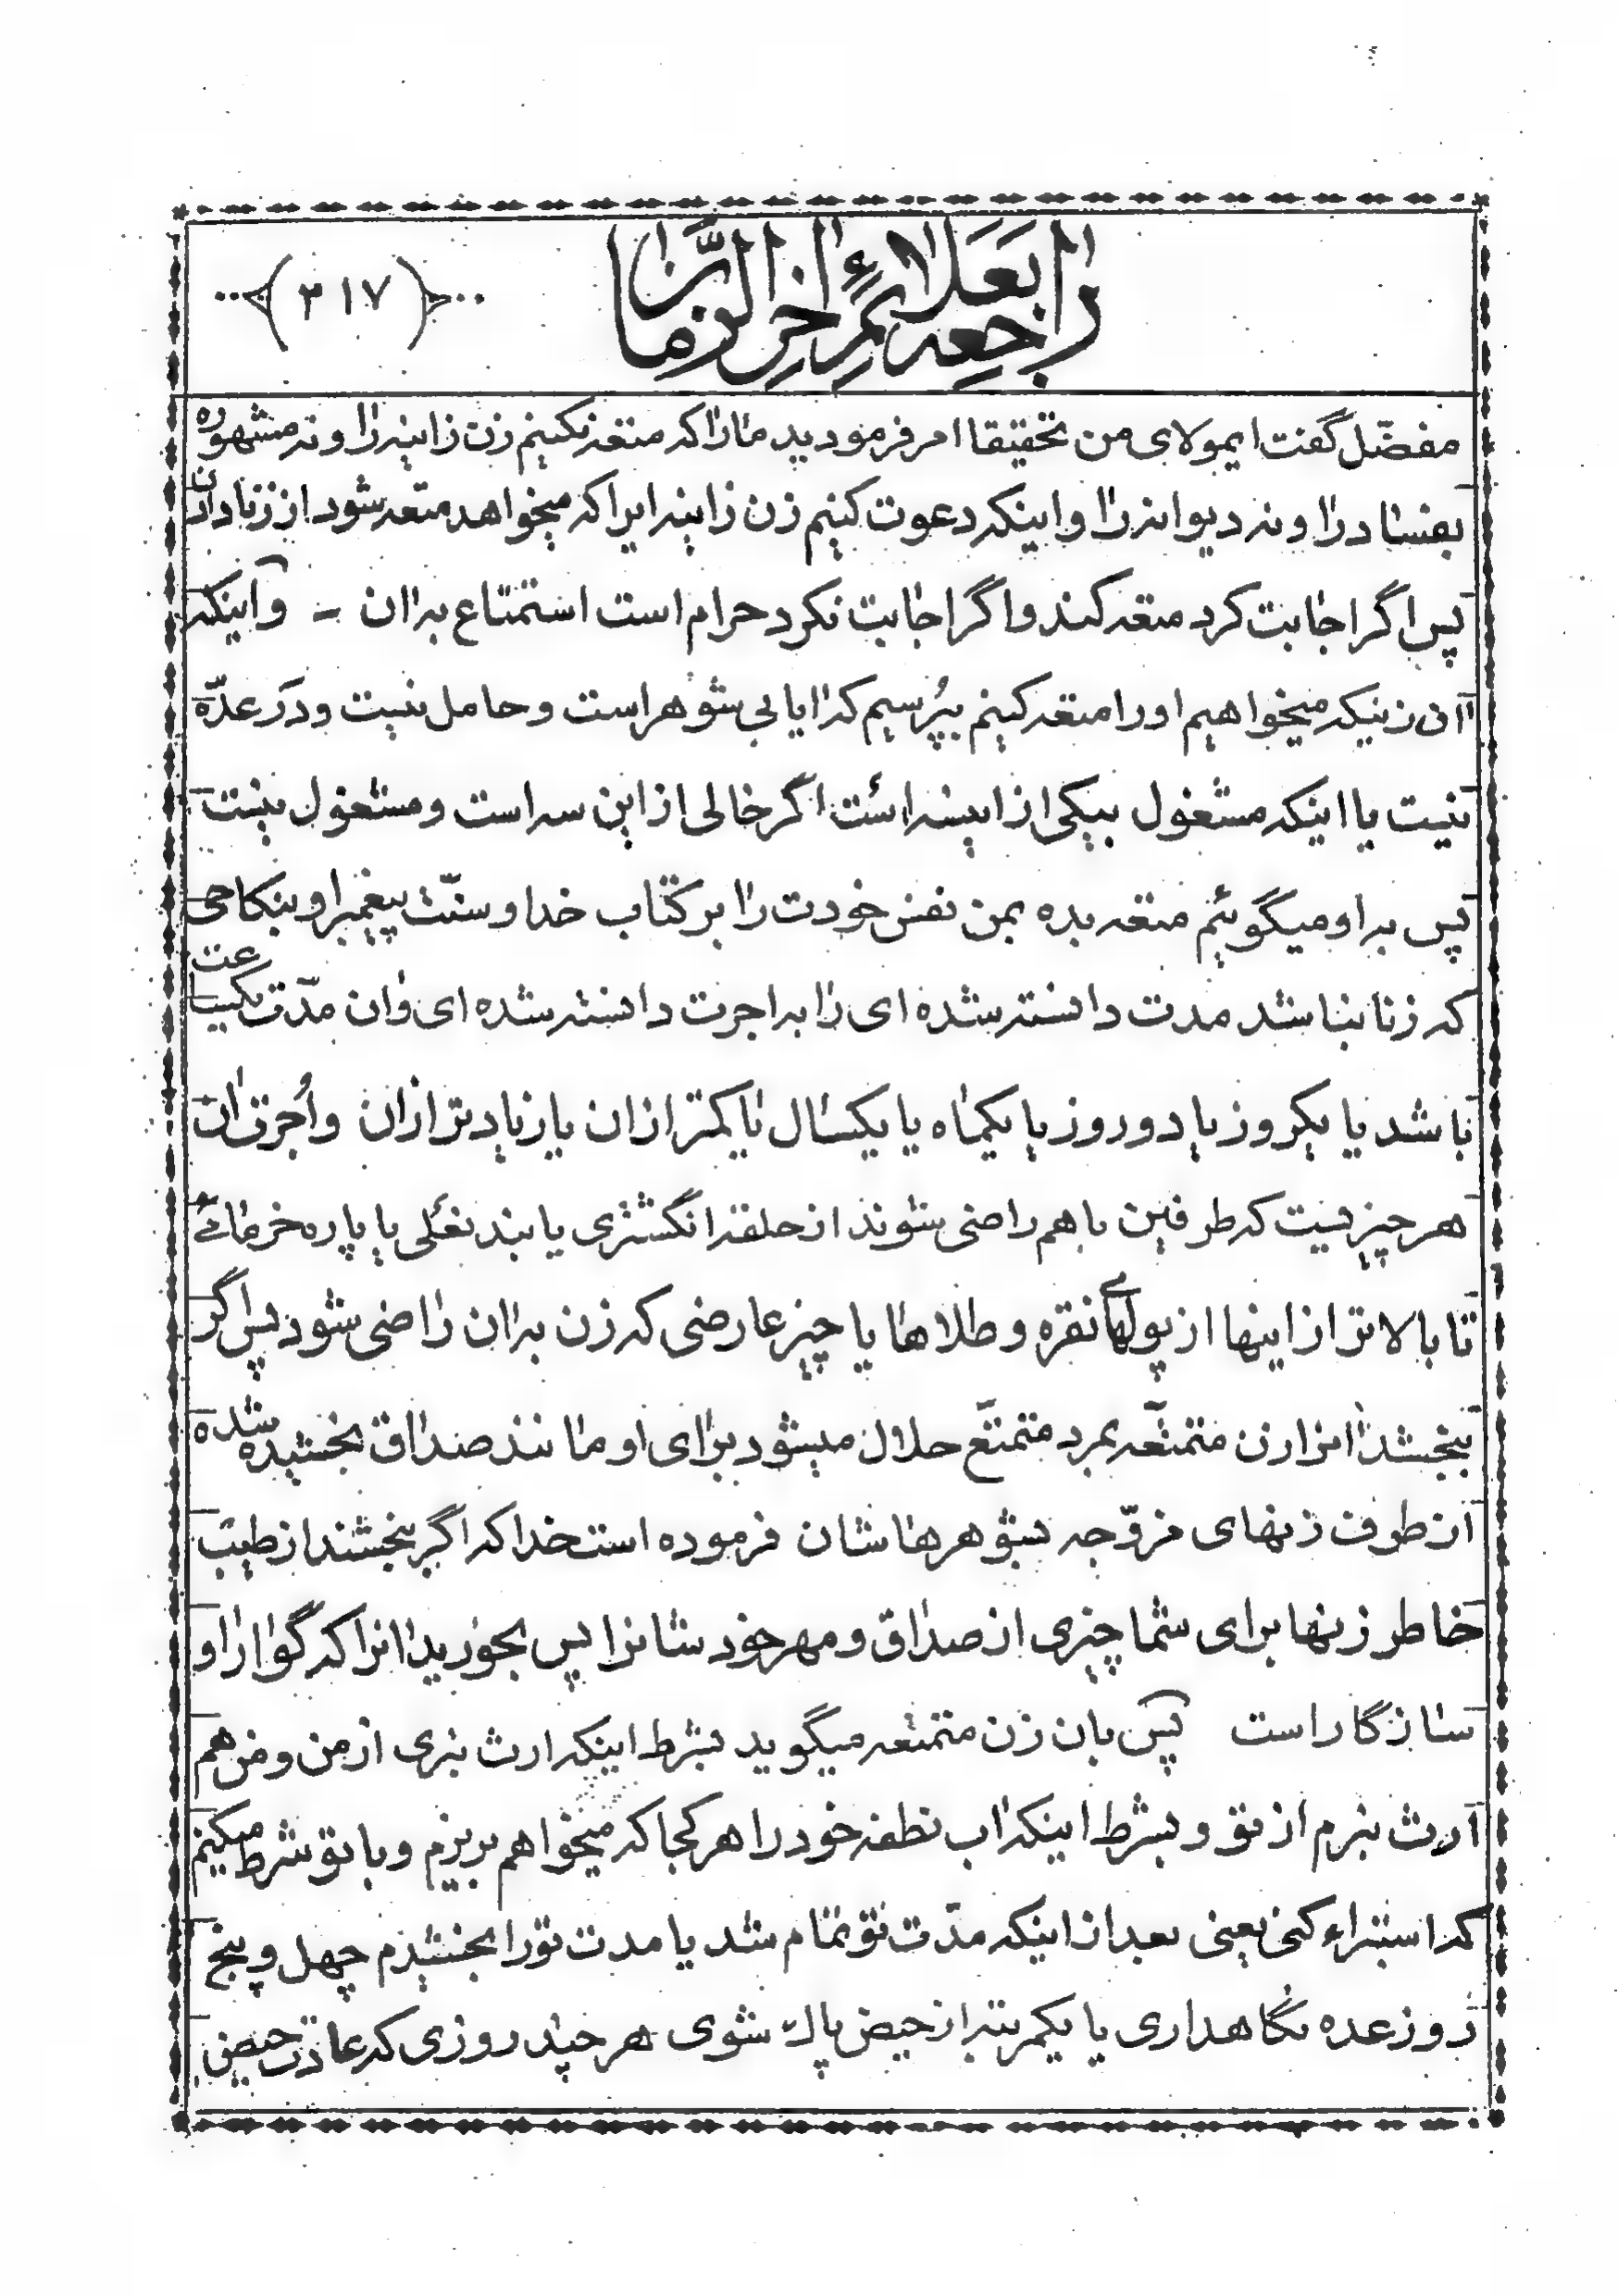 راجعه بعلائم آخر الزمان
﴿٣١٧﴾
مفضّل گفت ایمولای من تحقیقا امر فرمودید ما را که متعه نکنیم زن زانیه را و نه مشهوره
بفساد را و نه دیوانه را و اینکه دعوت کنیم زن زانیه ایرا که میخواهد متعه شود از زنا دادن
پس اگر اجابت کرد متعه کند و اگر اجابت نکرد حرام است استمتاع به ان - و اینکه
آن زنیکه میخواهیم او را متعه کنیم بپُرسیم که ایا بی شوهر است و حامل نیست و دَر عدّه
نیست یا اینکه مشغول بیکی از اینسه است اگر خالی از این سه است و مشغول نیست
پس به او میگوئیم متعه بده بمن نفس خودت را بر کتاب خدا و سنّت پیغمبر او بنکاحی
که زنا نباشد مدت دانسته شده ای را به اجرت دانسته شده ای و ان مدّت یکساعت
باشد یا یکروز یا دو روز یا یکماه یا یکسال یا کمتر از ان یا زیادتر از ان و اُجرت ان
هر چیزیست که طرفین با هم راضی شوند از حلقه انگشتری یا بند نعلی یا پاره خرمائی
تا بالاتر از اینها از پولهای نقره و طلاها یا چیز عارضی که زن به ان راضی شود پس اگر
ببخشد انرا زن متمتّعه بمرد متمتّع حلال میشود برای او مانند صداق بخشیده شده
از طرف زنهای مزوّجه بشوهرهاشان فرموده است خدا که اگر بخشند از طیب
خاطر زنها برای شما چیزی از صداق و مهر خودشانرا پس بخورید انرا که گوارا و
سازگار است پس بان زن متمتعه میگوید بشرط اینکه ارث نبری از من و من هم
ارث نبرم از تو و بشرط اینکه اب نطفه خود را هر کجا که میخواهم بریزم و با تو شرط میکنم
که استبراء کنی یعنی بعد از اینکه مدّت تو تمام شد یا مدت تو را بخشیدم چهل و پنج
روز عده نگاهداری یا یکمرتبه از حیض پاک شوی هر چند روزی که عادت حیض